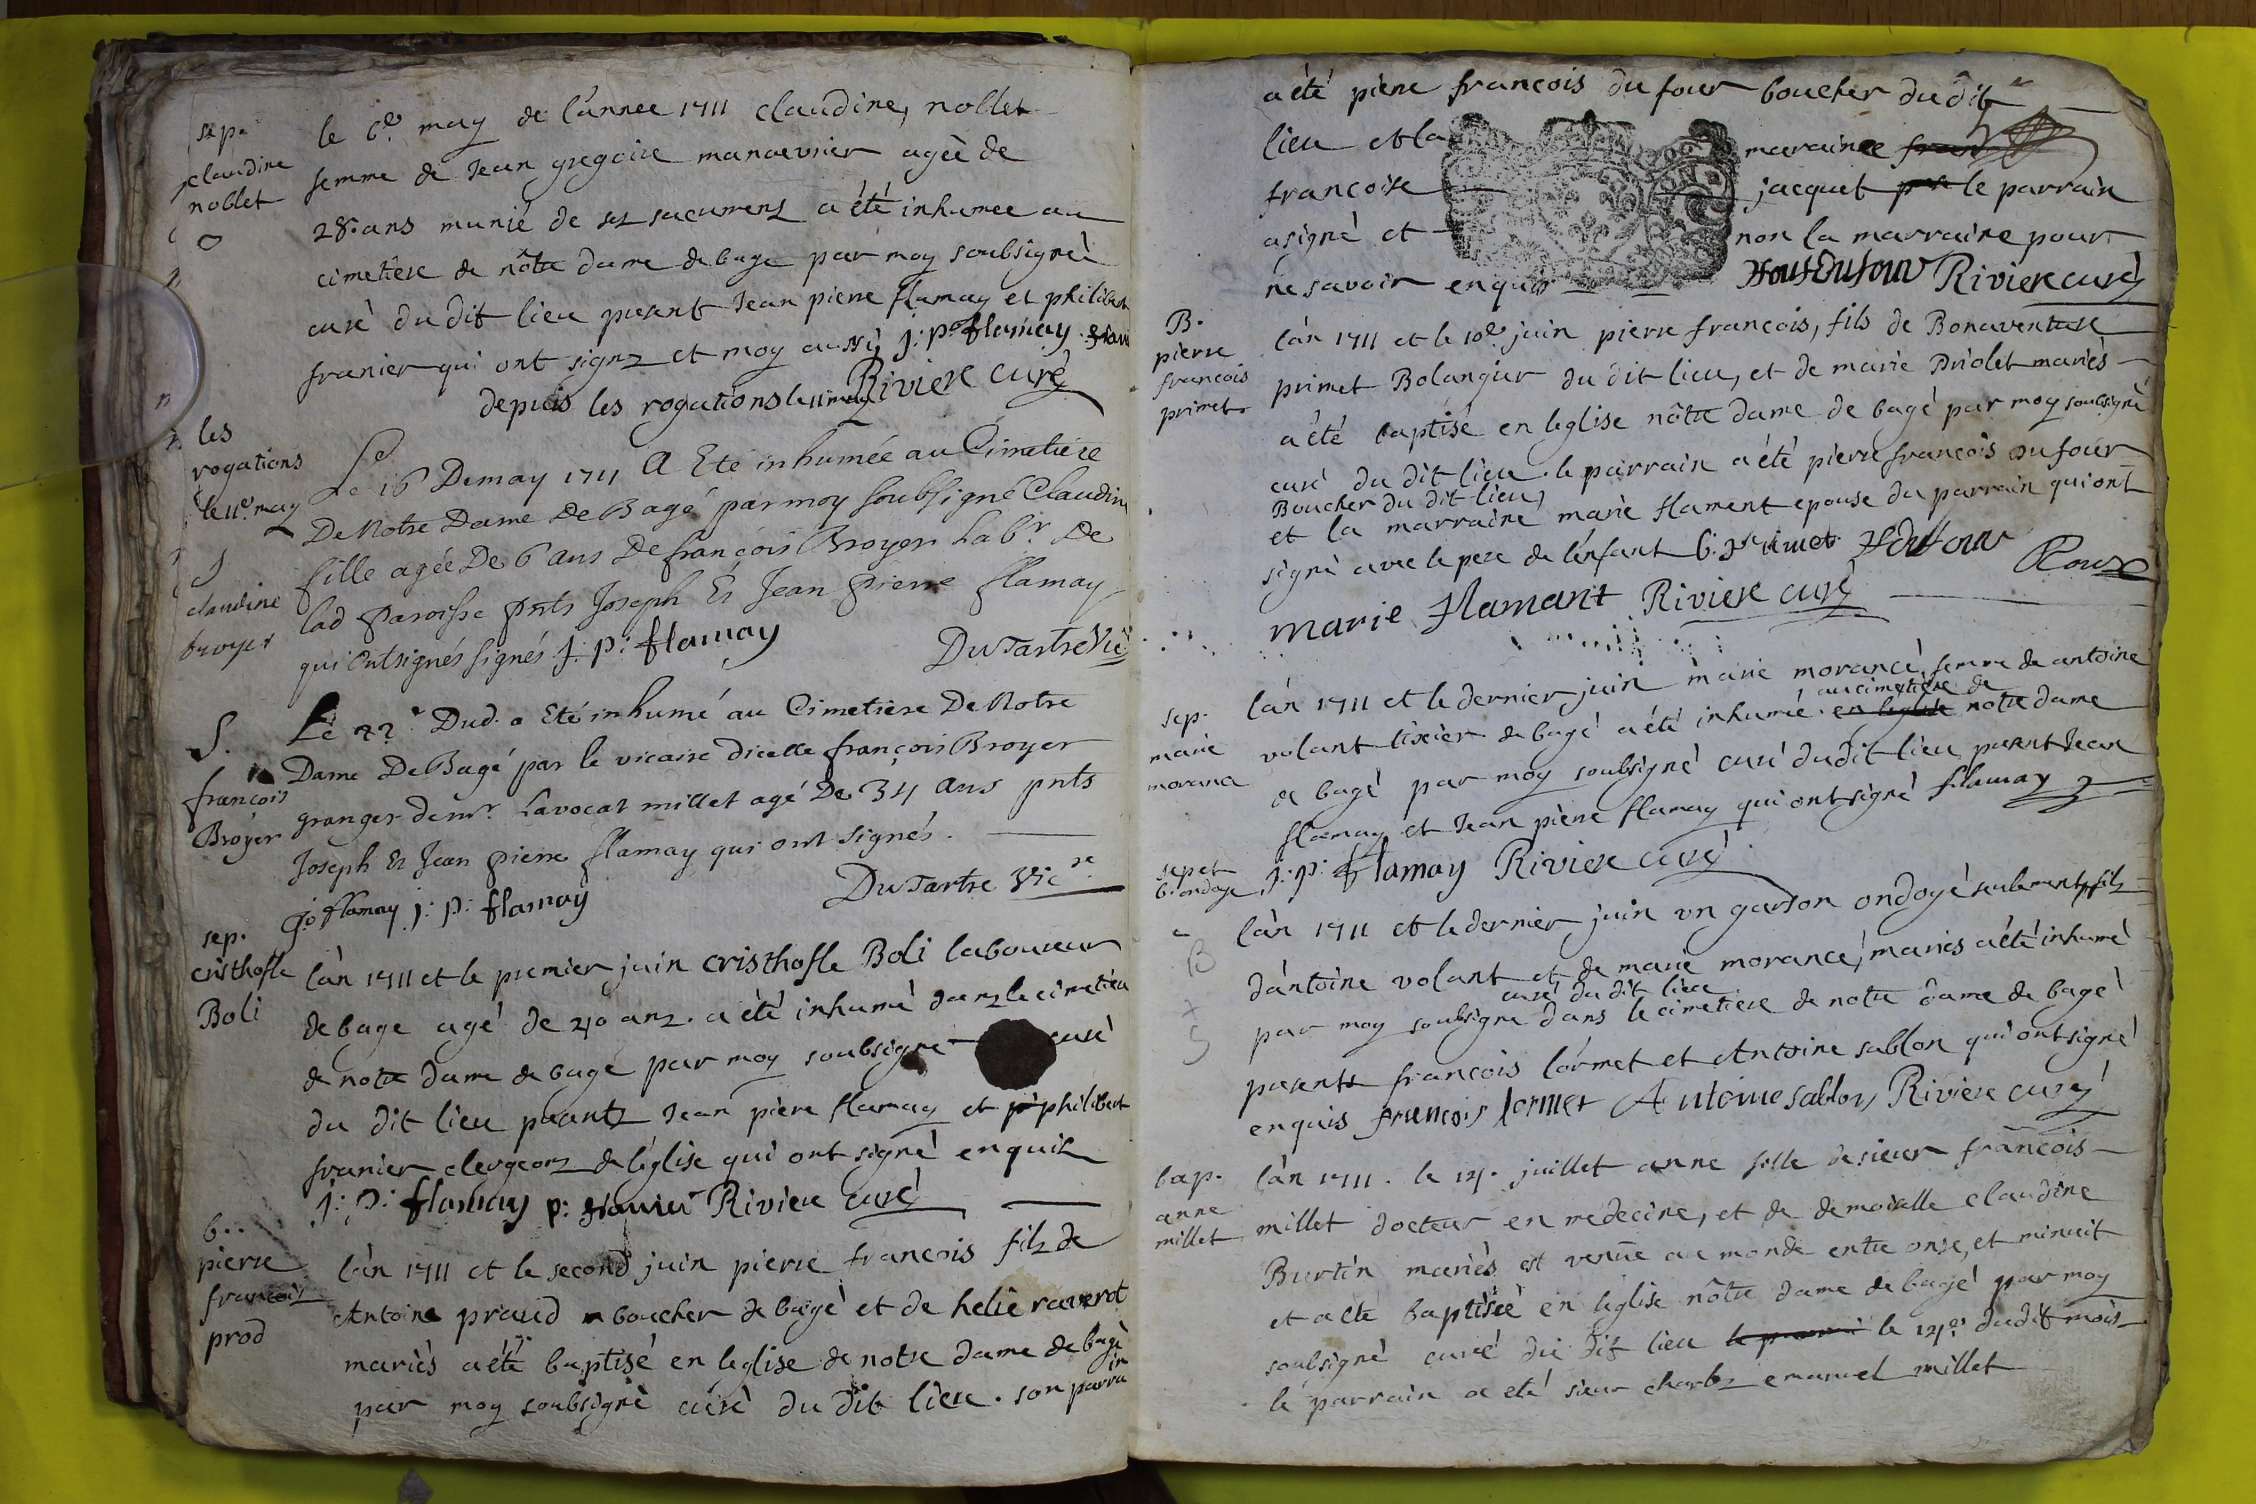 sep.
claudine
noblet
le 6e may de l'annee 1711 claudine, noblet
femme de Jean gregoire manoevrier agèe de
28. ans munie de ses sacumens a été inhumee au
cimetiere de nôtre dame de bage par moy soubsigné
curé du dit lieu presents Jean piene flamay et philibert
franier qui ont signz et moy aussy j: p: flamay
Riviere curé
depuis les rogations le 11 may
les
rogations
le 11e may
S
claudine
broyer
Le 16 De may 1711 A Eté inhumée au Cimetiere
De Notre Dame De Bagé par moy Soubsigné Claudine
fille agée De 6 ans De françois Broyer Labr. De
lad paroisse pnts Joseph Et Jean pierre flamay
qui Ont signés signés J: p: flamay
DuTartre Vic
S.
françois
Broyer
Le 22e Dud. a Eté inhumé au Cimetiere De Notre
Dame De Bagé par le vicaire dicelle françois Broyer
granger de mr. Lavocat millet agé De 34 ans pnts
Joseph Et Jean pierre flamay qui ont signés.
Jo flamay j: p: flamay
DuTartre Vicre
sep.
cristhofle
Boli
l'an 1711 et le premier juin cristhofle Boli laboureur
de bage agé de 40 anz. a été inhumé danz le cimetiere
de notre dame de bage par moy soubsigné curé
du dit lieu presentz Jean piere flamay et philibert
franier clergeonz de l'église qui ont signé enquis
J: P: flamay p: franier Riviere curé
b..
pierre
francois
prod
l'an 1711 et le second juin pierre francois filz de
Antoine praud boucher de bagé et de helie raverot
mariés a été baptisé en leglise de notre dame de bagé
par moy soubsigné curé du dit lieu. son parrain
a été piene francois du four boucher du dit
lieu et la maraine
francoise jacquet le parrain
a signé et non la marraine pour
ne savoir enquis
Riviere curé
B.
pierre
francois
primet
l'an 1711 et le 10e juin pierre francois, fils de Bonaventure
primet Bolangier du dit lieu, et de marie Driolet mariés
a été baptisé en leglise nôtre dame de bagé par moy soubsigné
curé du dit lieu. le parrain a été pierre francois du four
Boucher du dit lieu,
et la marraine marie flament epouse du parrain qui ont
signé avec le pere de l'enfant b. primet
Roux
marie flamant Riviere curé
sep.
marie
morance
l'an 1711 et le dernier juin marie morancé, femme de antoine
volant tixier de bagé a été inhumé
au cimetiere de
en leglise notre dame
de bagé par moy soubsigné curé du dit lieu present Jean
flamay et Jean piene flamay qui ont signé flamay
J: P: flamay Riviere curé
sep et
b. ondoye
B
+
S
l'an 1711 et le dernier juin un garson ondoyé seulement, filz
d'antoine volant et de marie morancé, mariés a été inhumé
curé du dit lieu
par moy soubsigne dans le cimetiere de notre dame de bagé
presents francois lormet et Antoine sablon qui ont signé
enquis francois lormet Antoine sablon, Riviere curé
bap.
anne
millet
l'an 1711. le 14. juillet anne fille de sieur francois
millet docteur en medecine, et de demoiselle claudine
Burtin mariés est venüe au monde entre onse, et minuit
et a été baptisée en leglise nôtre dame de bagé par moy
soubsigné curé du dit lieu le 14e. du dit mois
le parrain a été sieur charles emanuel millet